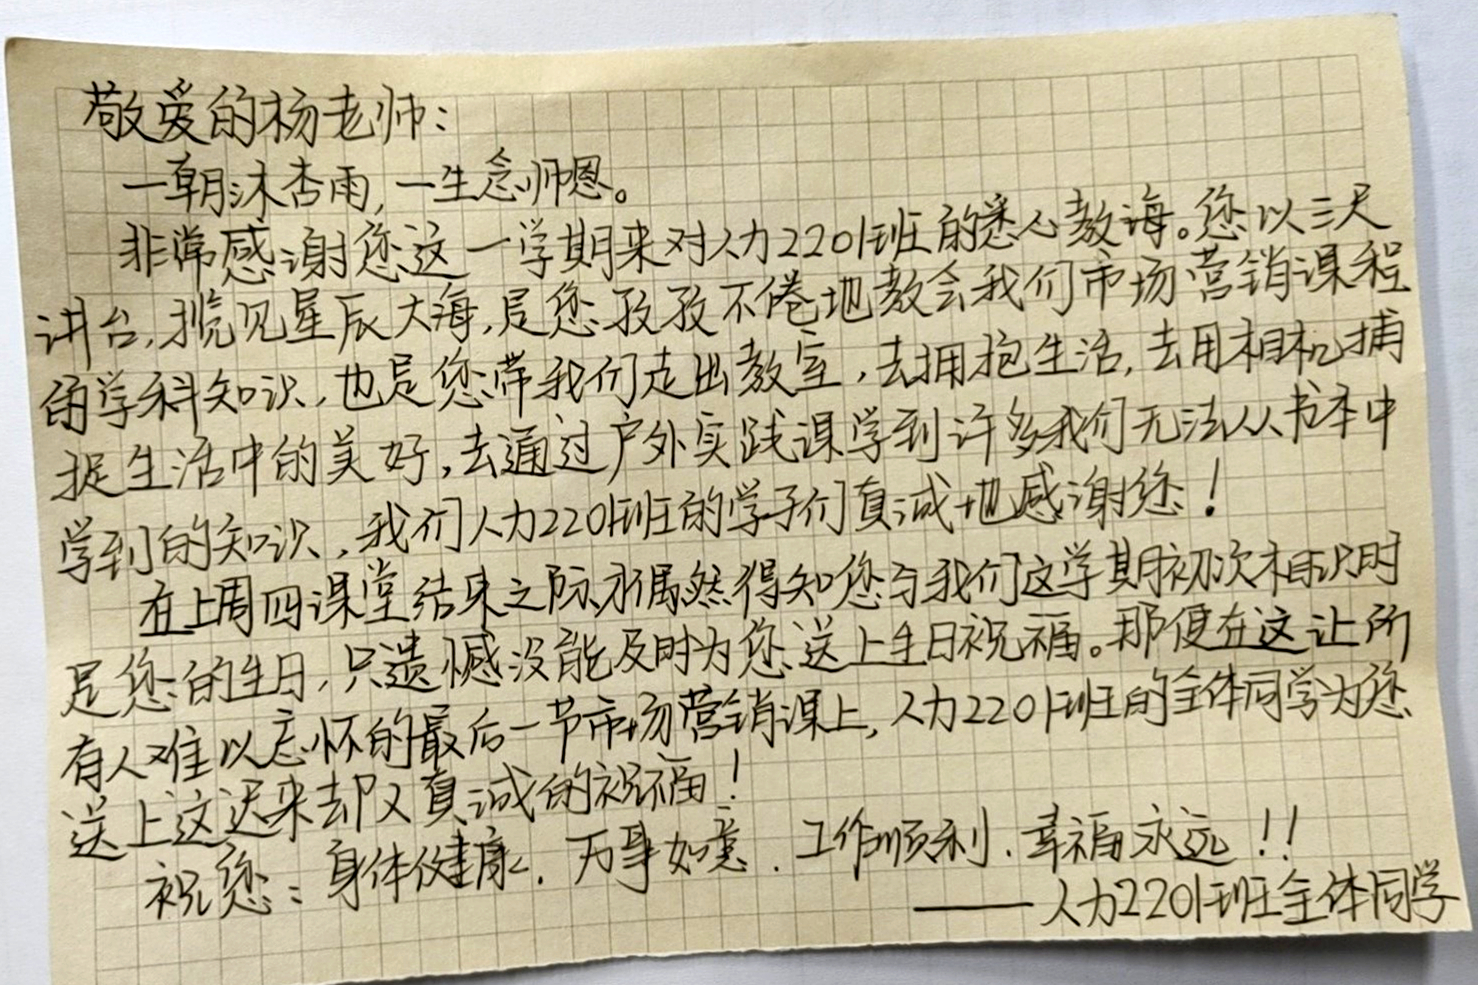 敬爱的杨老师：
一朝沐杏雨，一生念师恩。
非常感谢您这一学期来对人力2201班的悉心教诲。您以三尺
讲台，揽见星辰大海，是您孜孜不倦地教会我们市场营销课程
的学科知识，也是您带我们走出教室，去拥抱生活，去用相机捕
捉生活中的美好，去通过户外实践课学到许多我们无法从书本中
学到的知识，我们人力2201班的学子们真诚地感谢您！
在上周四课堂结束之际才偶然得知您与我们这学期初次相识时
是您的生日，只遗憾没能及时为您送上生日祝福。那便在这让所
有人难以忘怀的最后一节市场营销课上，人力2201班的全体同学为您
送上这迟来却又真诚的祝福！
祝您：身体健康、万事如意、工作顺利、幸福永远！！
——人力2201班全体同学